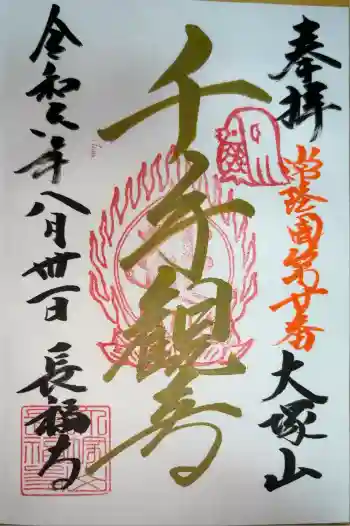 奉拝
常陸国第廿番
大塚山
千手観音
令和六年八月卅一日
長福寺